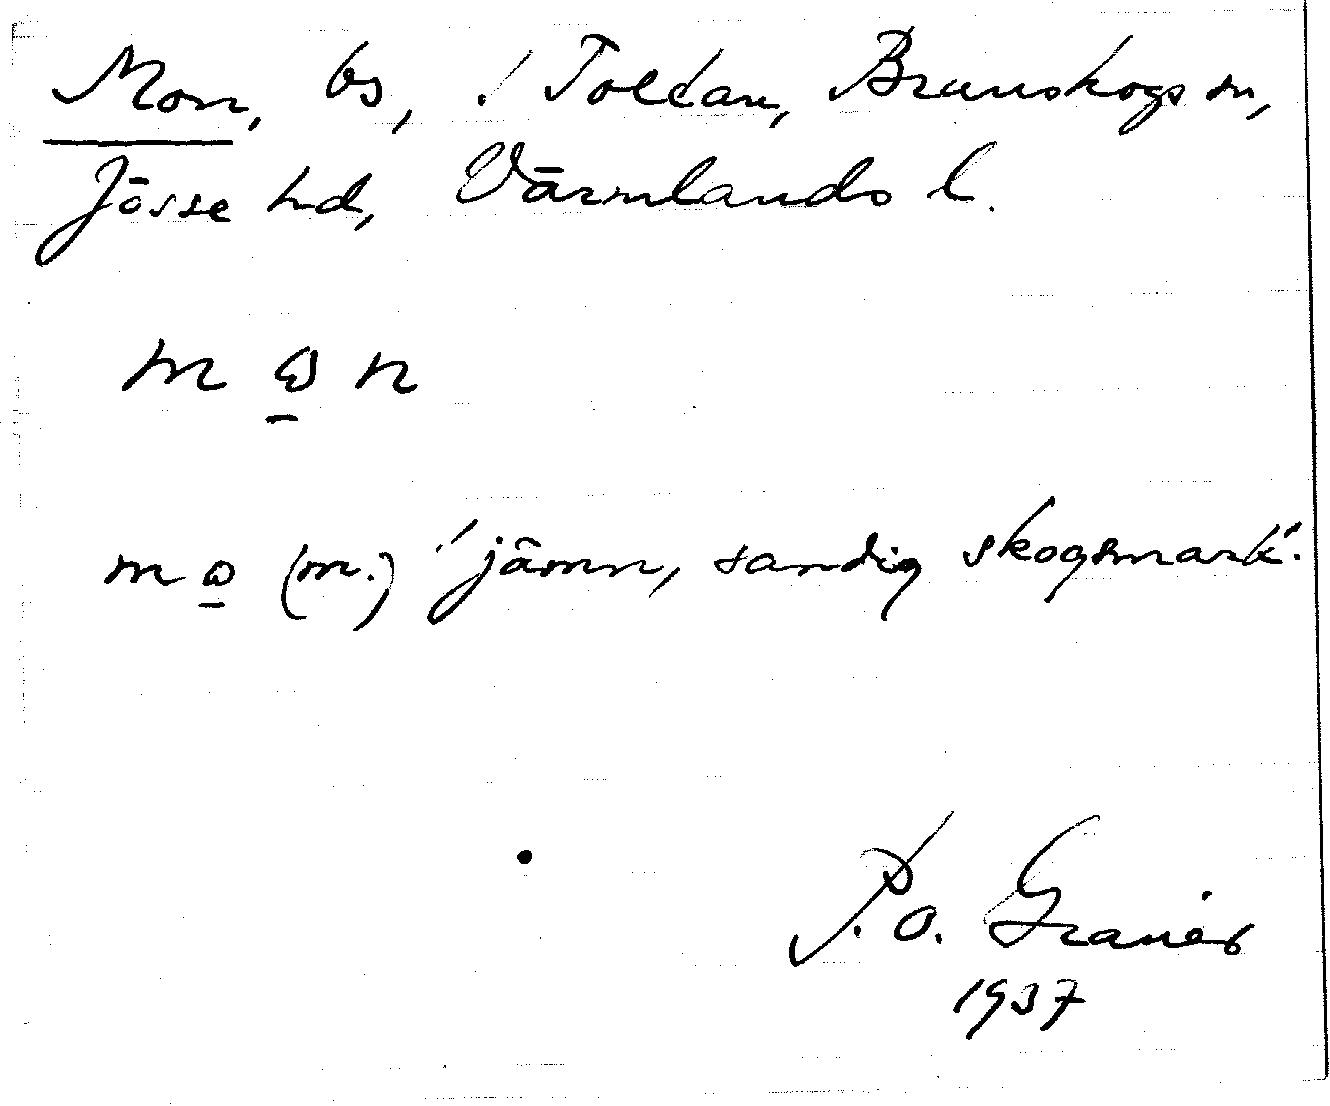 Mon, bs, i Toltan, Brunskogs sn,
Jösse hd, Värmlands l.
m ꞷ̱ n
m ꞷ̱ (m.) "jämn, sandig skogsmark".
P. O. Granér
1937